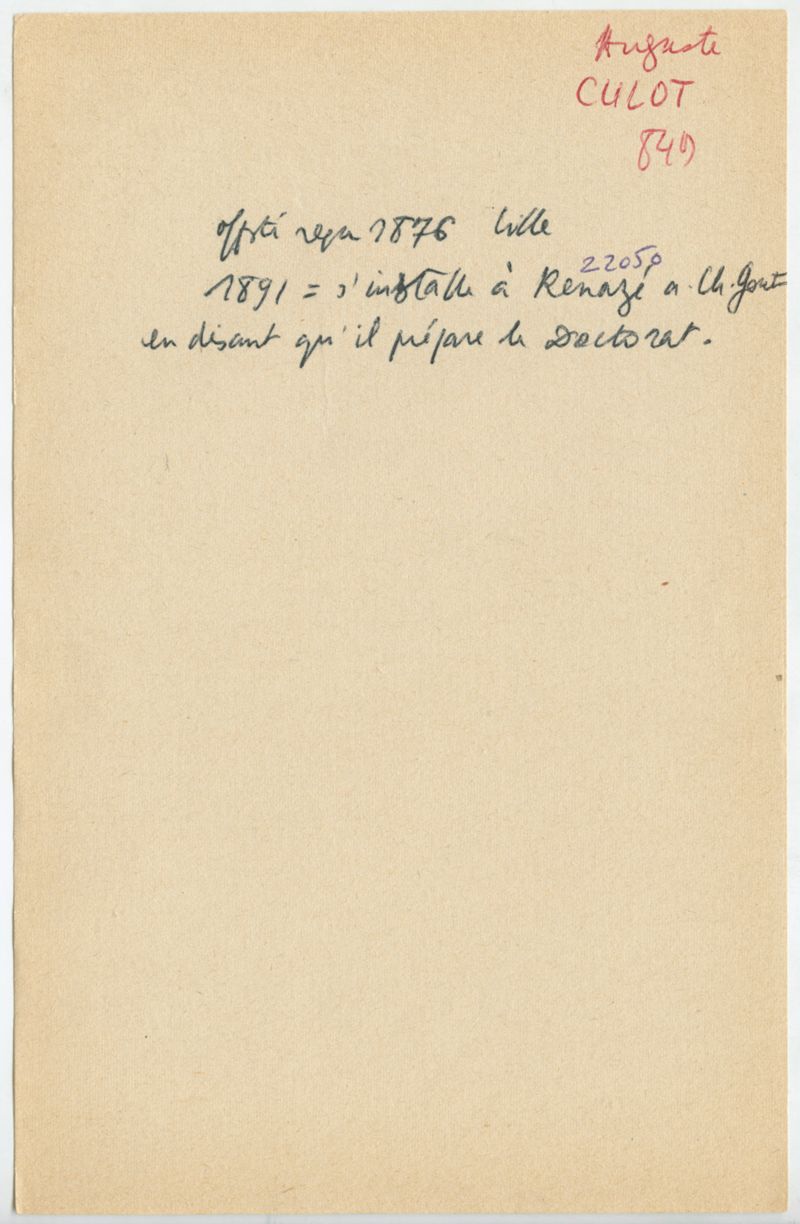 Auguste
CULOT
849
reçu 1876 Lille
22050
1891 = s'installe à Renazé a. Ch. Gont
en disant qu'il prépare le Doctorat.